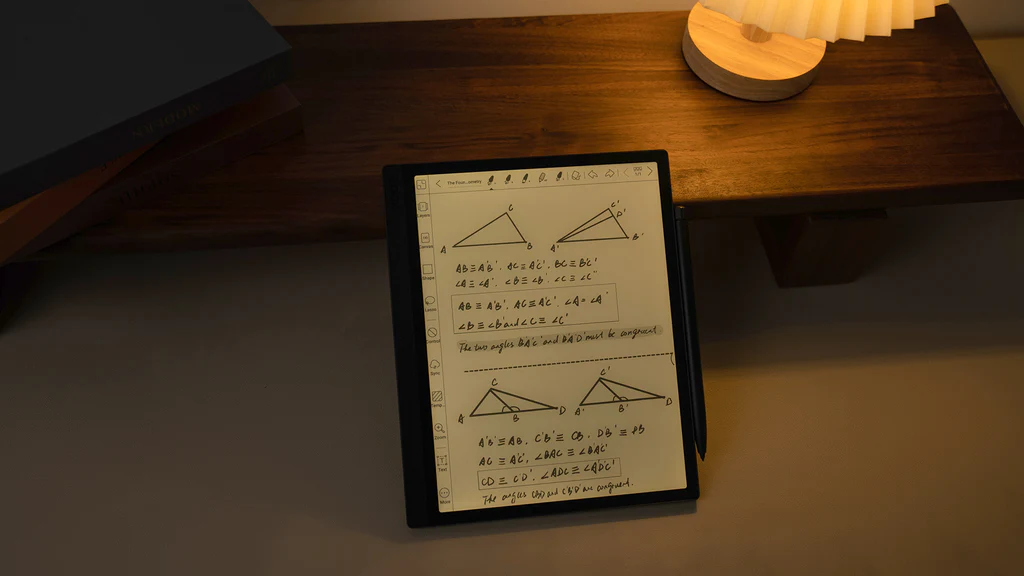 MODERN
The Foun...ometry
C
C'
D'
A
B
A'
B'
AB ≡ A'B', AC ≡ A'C', BC ≡ B'C'
∠A ≡ ∠A', ∠B ≡ ∠B', ∠C ≡ ∠C'
AB ≡ A'B', AC ≡ A'C', ∠A = ∠A'
∠B ≡ ∠B' and ∠C ≡ ∠C'
The two angles B'A'C' and B'A'D' must be congruent
C
C'
A
B
D
A'
B'
D
A'B' ≡ AB, C'B' ≡ CB, D'B' ≡ DB
AC ≡ A'C', ∠BAC ≡ ∠BAC'
CD ≡ C'D', ∠ADC ≡ ∠A'D'C'
The angles CBD and C'B'D' are congruent.
Layers
Shape
Lasso
Sync
Zoom
Text
More